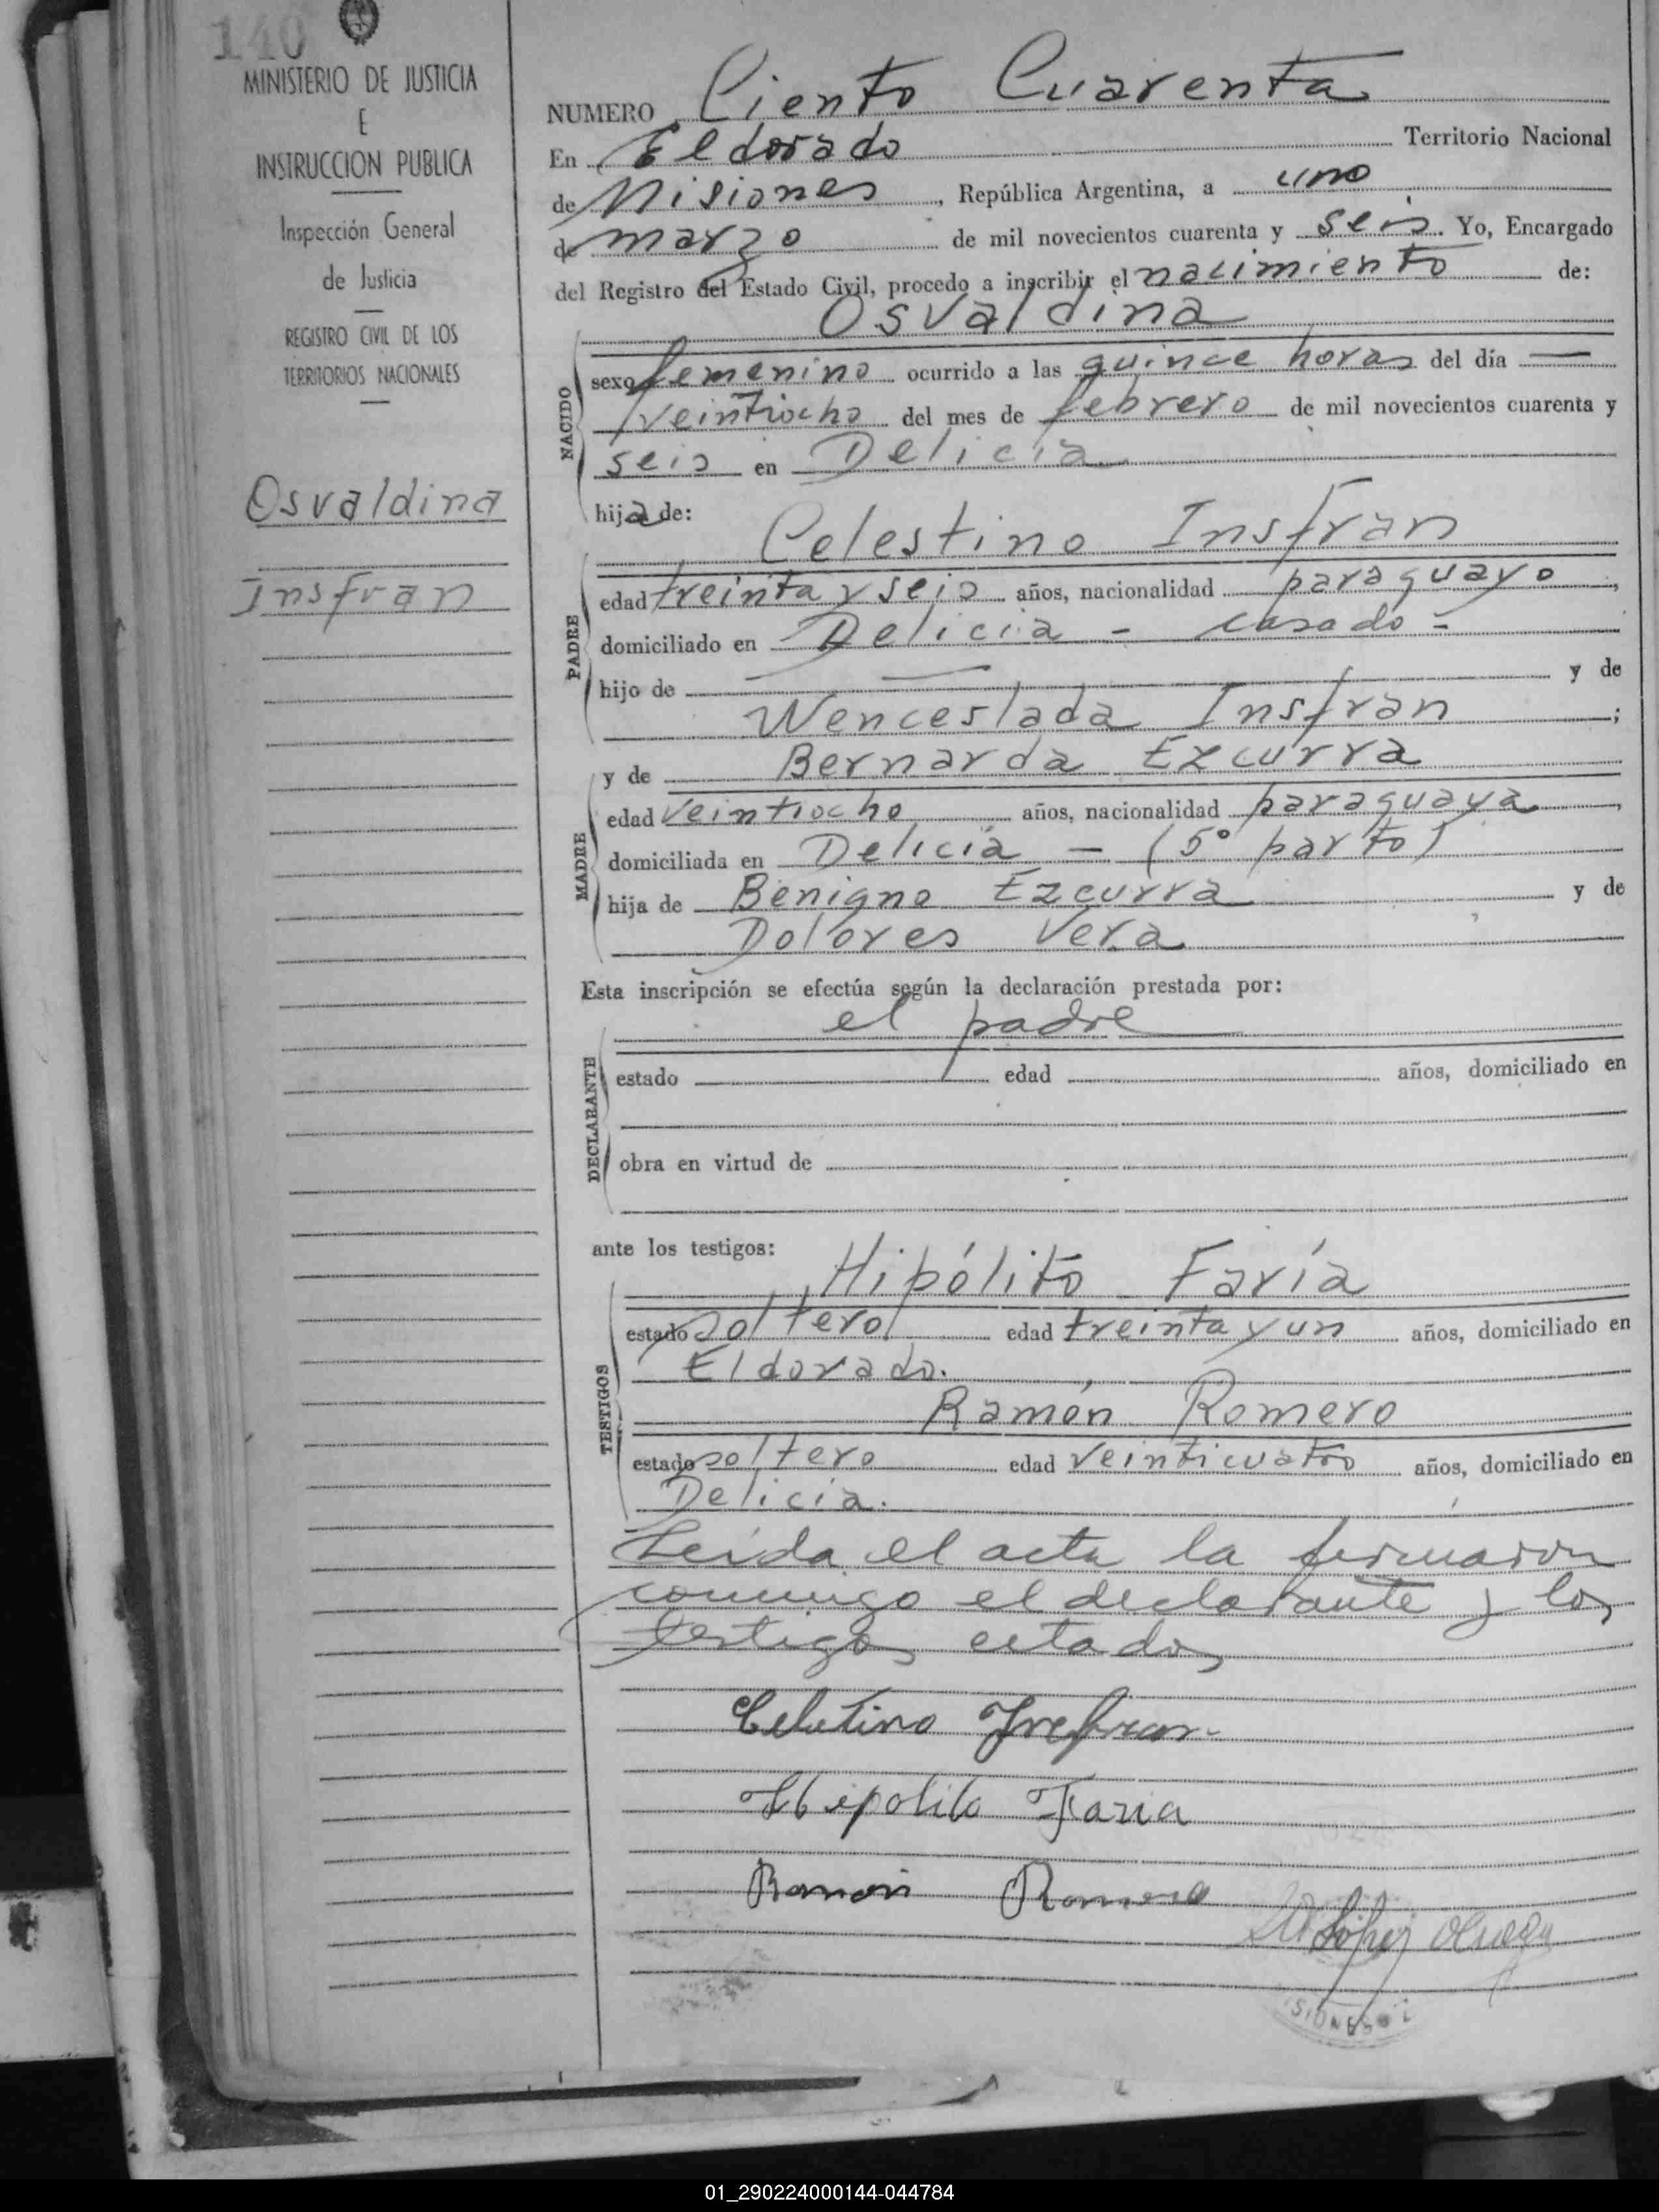 140
MINISTERIO DE JUSTICIA
E
INSTRUCCION PUBLICA
Inspección General
de Justicia
REGISTRO CIVIL DE LOS
TERRITORIOS NACIONALES
Osvaldina
Insfran
NUMERO Ciento Cuarenta
En Eldorado Territorio Nacional
de Misiones, República Argentina, a uno
de marzo de mil novecientos cuarenta y seis. Yo, Encargado
del Registro del Estado Civil, procedo a inscribir el nacimiento de:
Osvaldina
NACIDO
sexo femenino ocurrido a las quince horas del día —
veintiocho del mes de febrero de mil novecientos cuarenta y
seis en Delicia
hija de:
Celestino Insfran
PADRE
edad treinta y seis años, nacionalidad paraguayo,
domiciliado en Delicia - casado -
hijo de — — y de
Wenceslada Insfran;
y de Bernarda Ezcurra
MADRE
edad veintiocho años, nacionalidad paraguaya,
domiciliada en Delicia — (5° parto)
hija de Benigno Ezcurra y de
Dolores Vera
Esta inscripción se efectúa según la declaración prestada por:
el padre
DECLARANTE
estado edad años, domiciliado en
obra en virtud de
ante los testigos:
Hipólito Faría
TESTIGOS
estado soltero edad treinta y un años, domiciliado en
Eldorado.
Ramón Romero
estado soltero edad veinticuatro años, domiciliado en
Delicia.
Leída el acta la firmaron
conmigo el declarante y los
testigos citados
Celestino Insfran
Hipolito Faria
Ramon Romero
López
SIONES
01_290224000144-044784